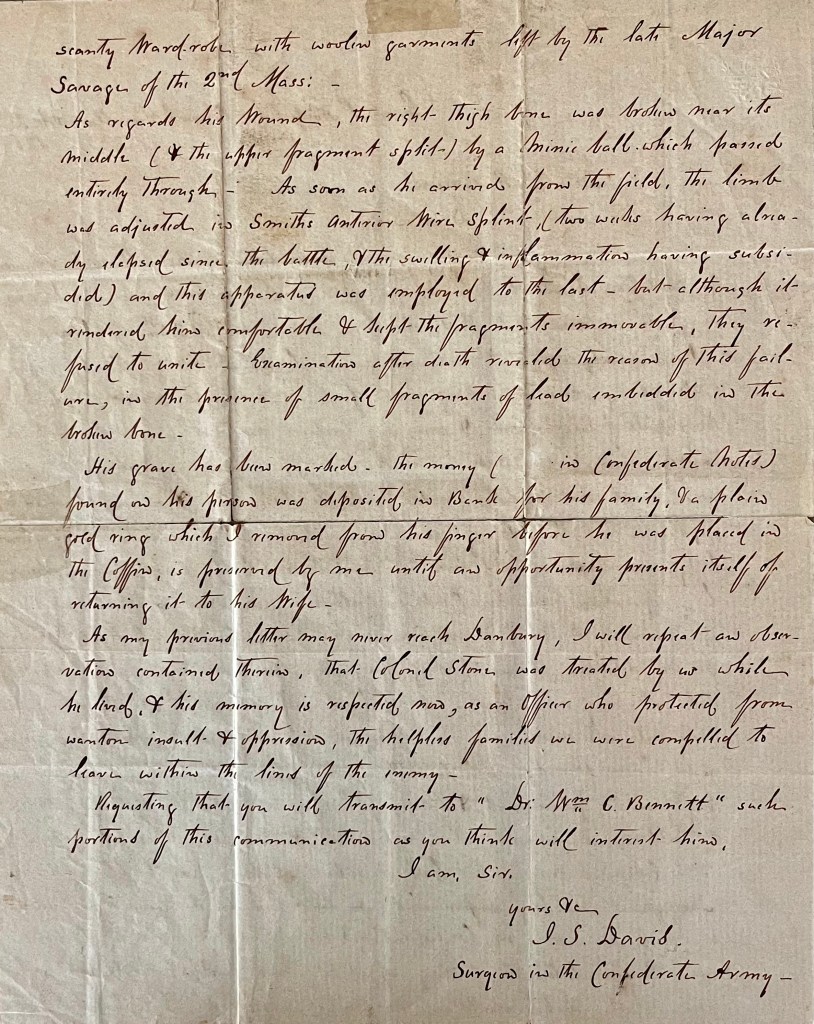 scanty Wardrobe with woolen garments left by the late Major
Savage of the 2nd Mass: -
As regards his Wound, the right thigh bone was broken near its
middle (& the upper fragment split) by a minie ball which passed
entirely through - As soon as he arrived from the field, the limb
was adjusted in Smiths Anterior Wire Splint, (two weeks having alrea-
dy elapsed since the battle, & the swelling & inflammation having subsi-
ded) and this apparatus was employed to the last - but although it
rendered him comfortable & kept the fragments immovable, they re-
fused to unite - Examination after death revealed the reason of this fail-
ure, in the presence of small fragments of lead embedded in the
broken bone -
His grave has been marked - the money ( in Confederate Notes)
found on his person was deposited in Bank for his family, & a plain
gold ring which I removed from his finger before he was placed in
the Coffin, is preserved by me until an opportunity presents itself of
returning it to his Wife -
As my previous letter may never reach Danbury, I will repeat an obser-
vation contained therein, that Colonel Stone was treated by us while
he lived, & his memory is respected now, as an Officer who protected from
wanton insult & oppression, the helpless families we were compelled to
leave within the lines of the enemy -
Requesting that you will transmit to "Dr: Wm C. Bennett" such
portions of this communication as you think will interest him,
I am, Sir,
yours &c
J. S. Davis.
Surgeon in the Confederate Army -